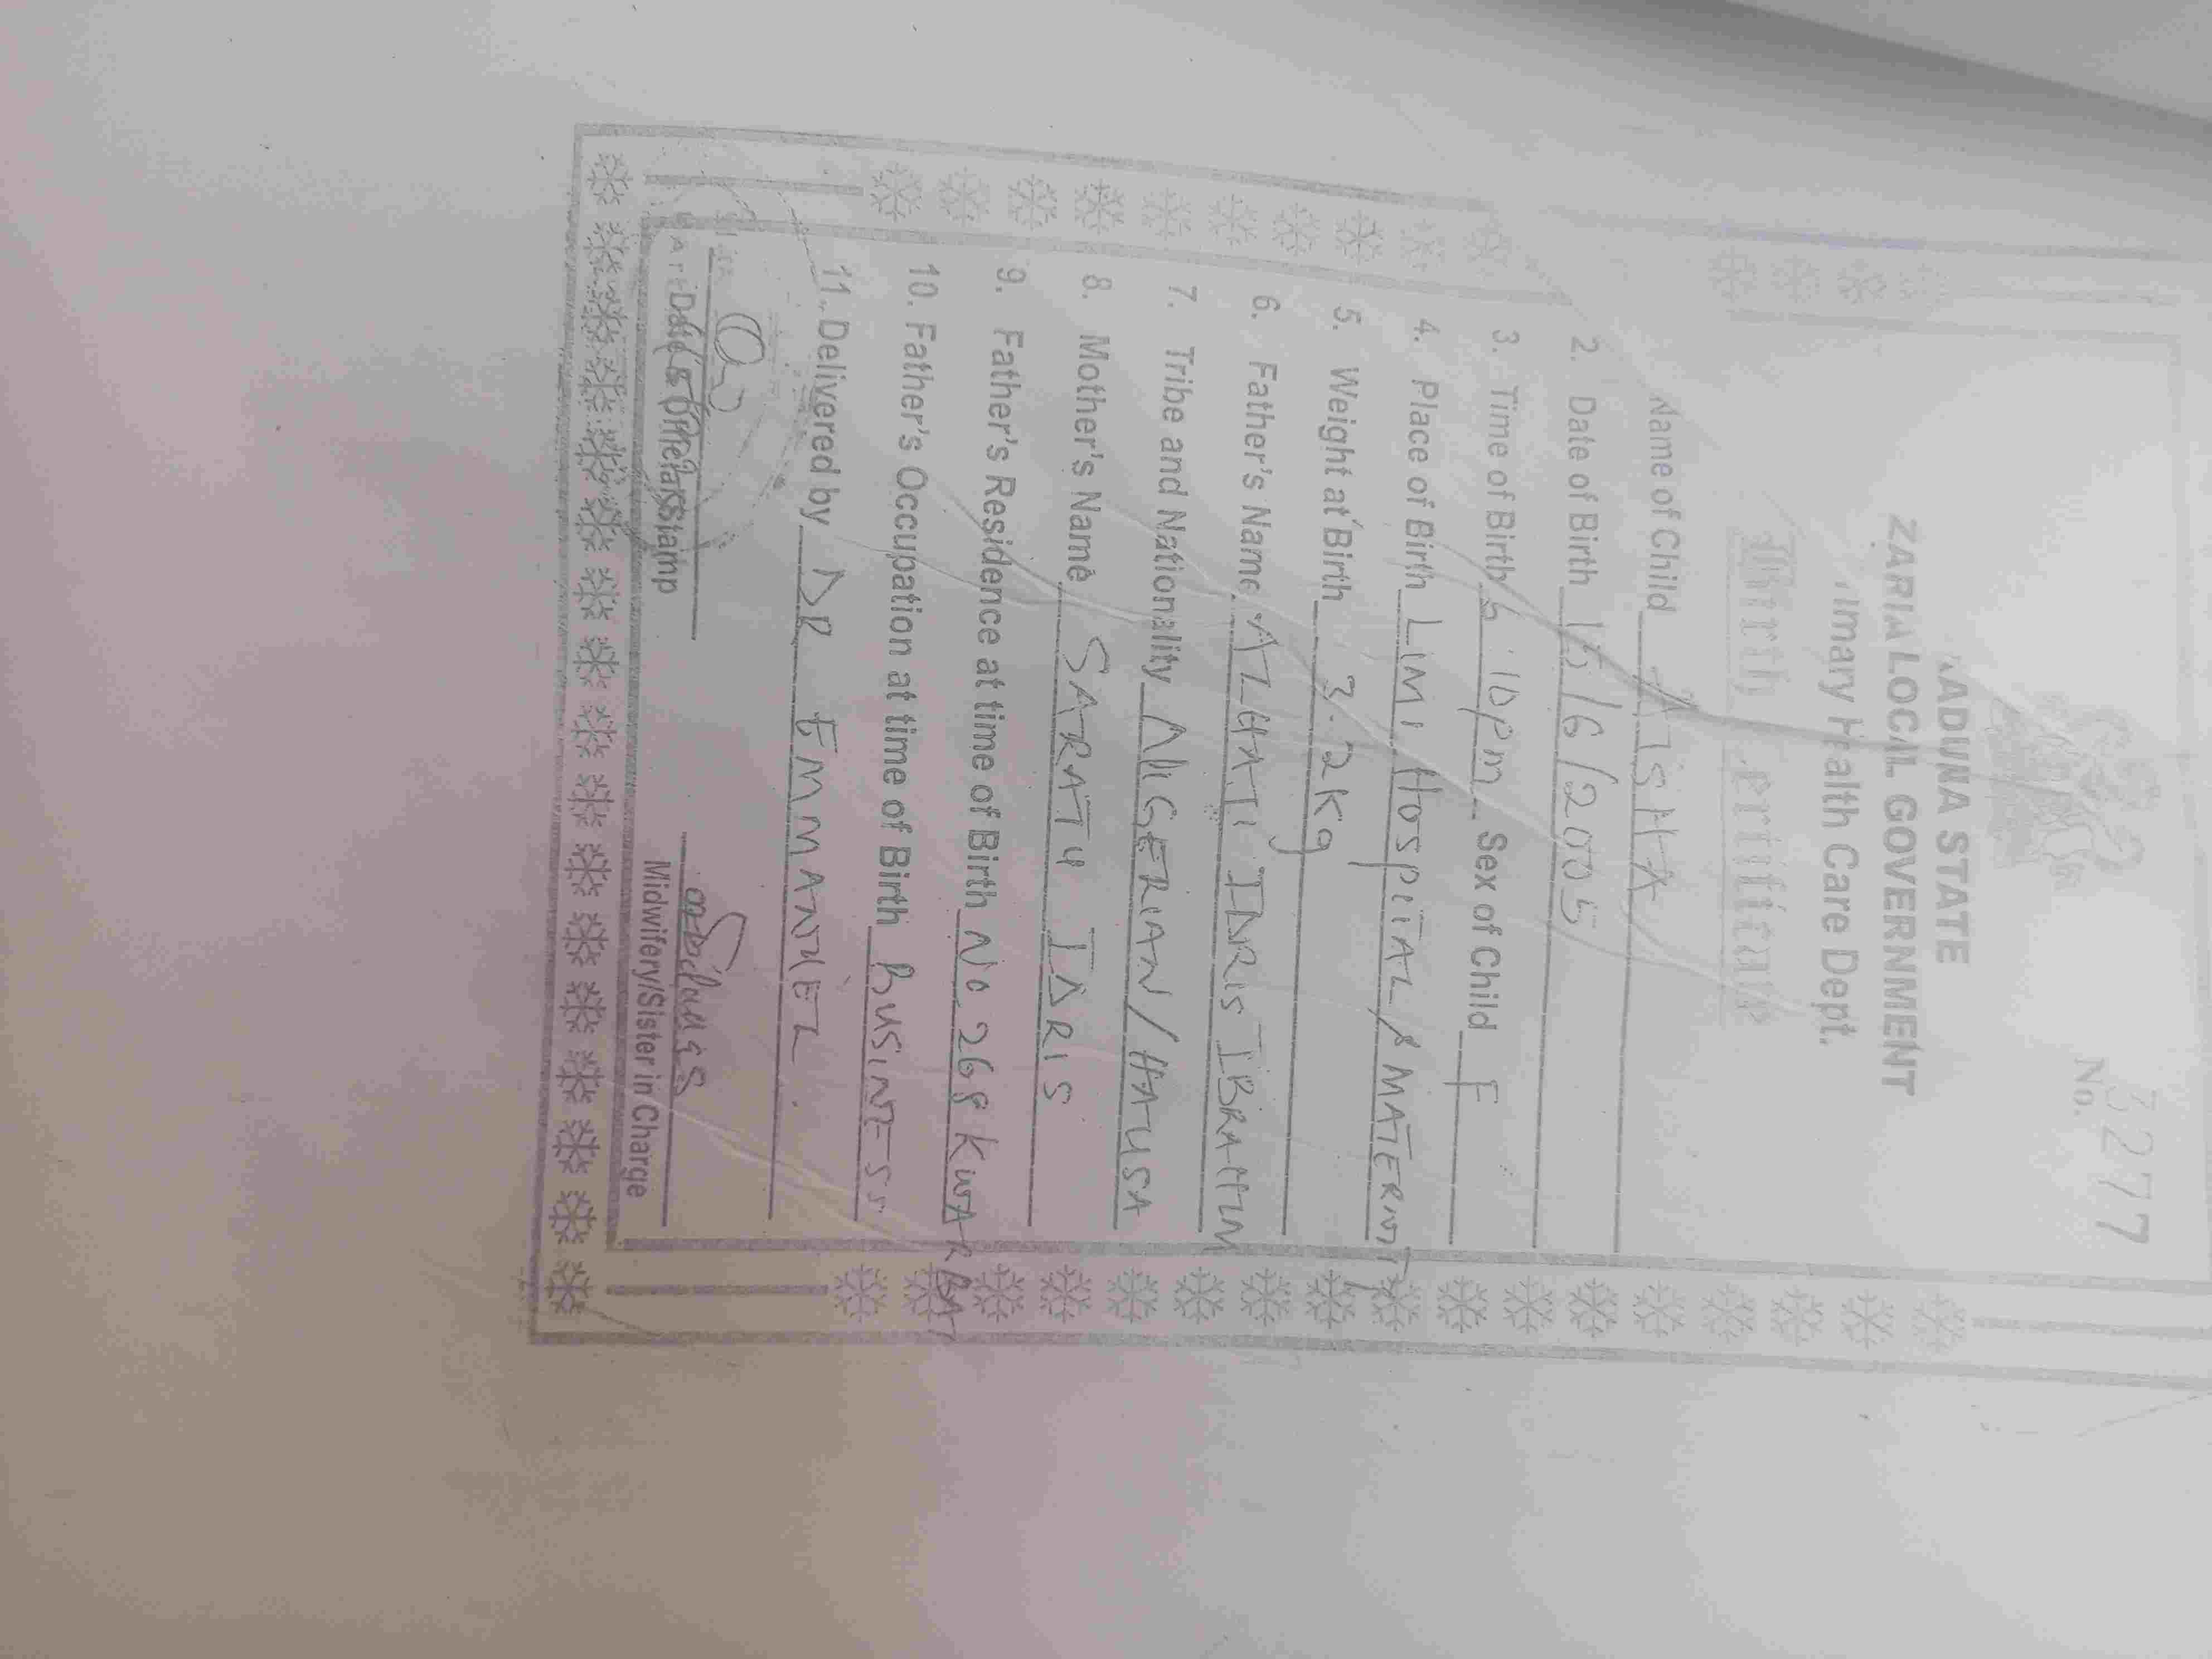 No. 3277
KADUNA STATE
ZARIA LOCAL GOVERNMENT
Primary Health Care Dept.
Birth Certificate
Name of Child AISHA
2. Date of Birth 15/6/2005
3. Time of Birth 5:10pm Sex of Child F
4. Place of Birth LIMI HOSPITAL & MATERNITY
5. Weight at Birth 3.2Kg
6. Father's Name ALHAJI IDRIS IBRAHIM
7. Tribe and Nationality NIGERIAN / HAUSA
8. Mother's Name SARATU IDRIS
9. Father's Residence at time of Birth No. 268 KWARBAI
10. Father's Occupation at time of Birth BUSINESS
11. Delivered by DR EMMANUEL.
Date & Official Stamp
Midwifery/Sister in Charge